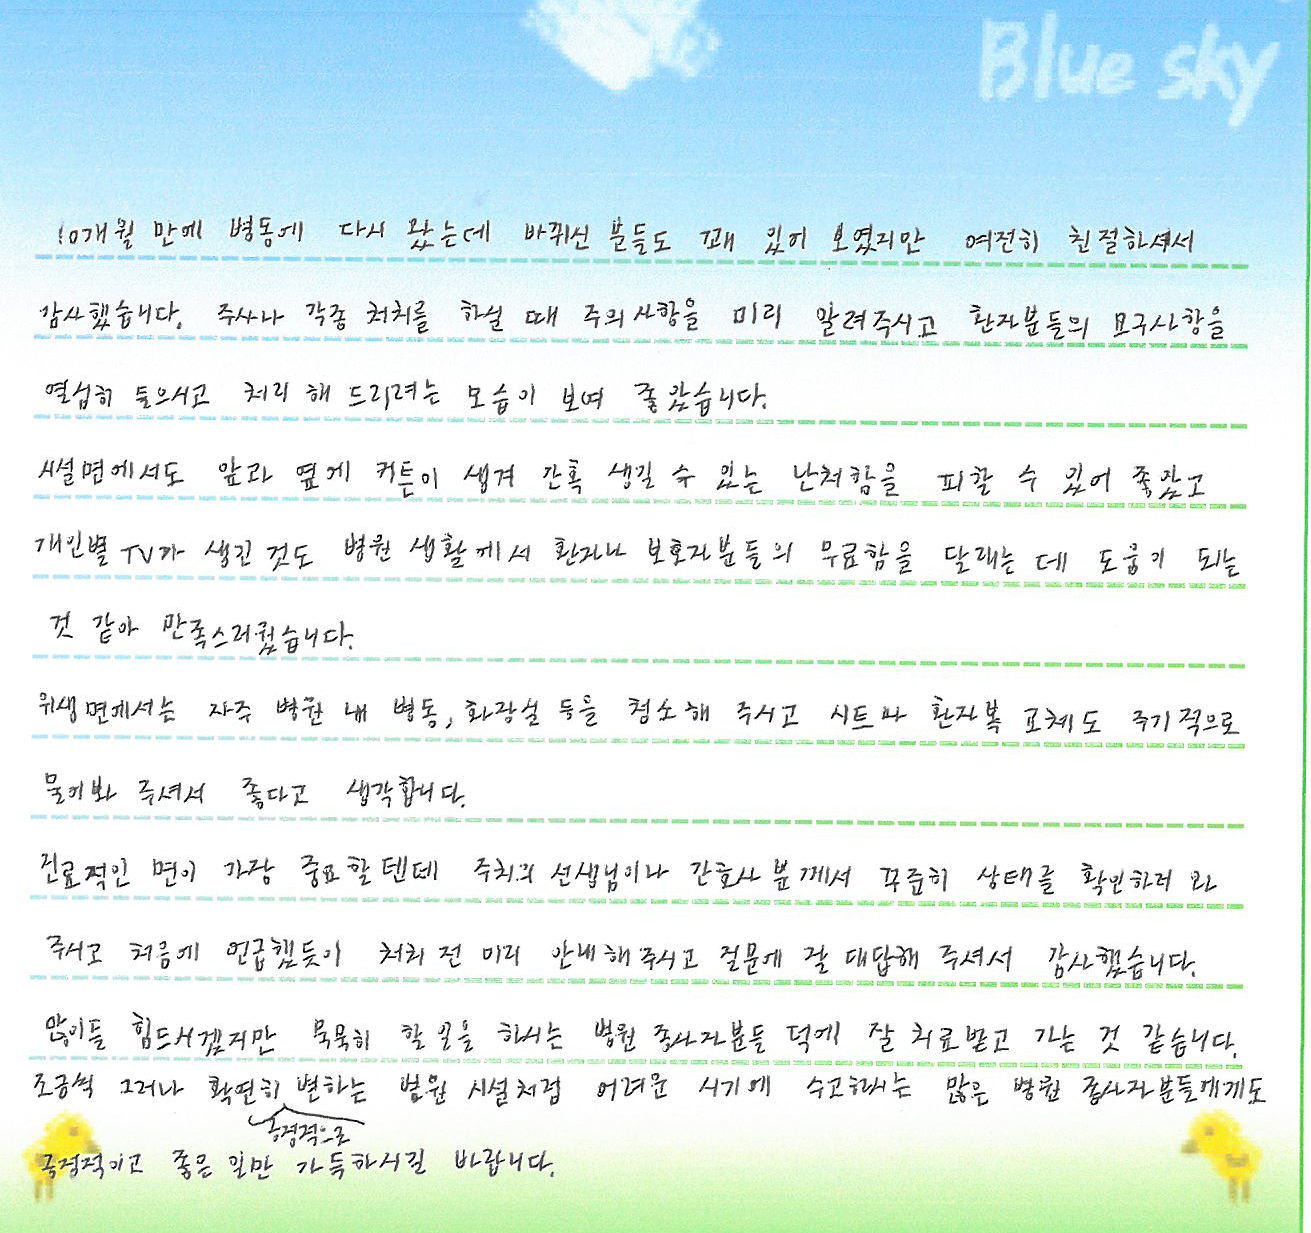 Blue sky
10개월 만에 병동에 다시 왔는데 바뀌신 분들도 꽤 있어 보였지만 여전히 친절하셔서
감사했습니다. 주사나 각종 처치를 하실 때 주의사항을 미리 알려주시고 환자분들의 요구사항을
열심히 들으시고 처리 해 드리려는 모습이 보여 좋았습니다.
시설면에서도 앞과 옆에 커튼이 생겨 간혹 생길 수 있는 난처함을 피할 수 있어 좋았고
개인별 TV가 생긴 것도 병원 생활에서 환자나 보호자분들의 무료함을 달래는 데 도움이 되는
것 같아 만족스러웠습니다.
위생면에서는 자주 병원 내 병동, 화장실 등을 청소해 주시고 시트나 환자복 교체도 주기적으로
물어봐 주셔서 좋다고 생각합니다.
진료적인 면이 가장 중요할텐데 주치의 선생님이나 간호사 분께서 꾸준히 상태를 확인하러 와
주시고 처음에 언급했듯이 처치 전 미리 안내해 주시고 질문에 잘 대답해 주셔서 감사했습니다.
많이들 힘드시겠지만 묵묵히 할 일을 하시는 병원 종사자분들 덕에 잘 치료받고 가는 것 같습니다.
조금씩 그러나 확연히 변하는 병원 시설처럼 어려운 시기에 수고하시는 많은 병원 종사자분들에게도
긍정적으로
긍정적이고 좋은 일만 가득하시길 바랍니다.